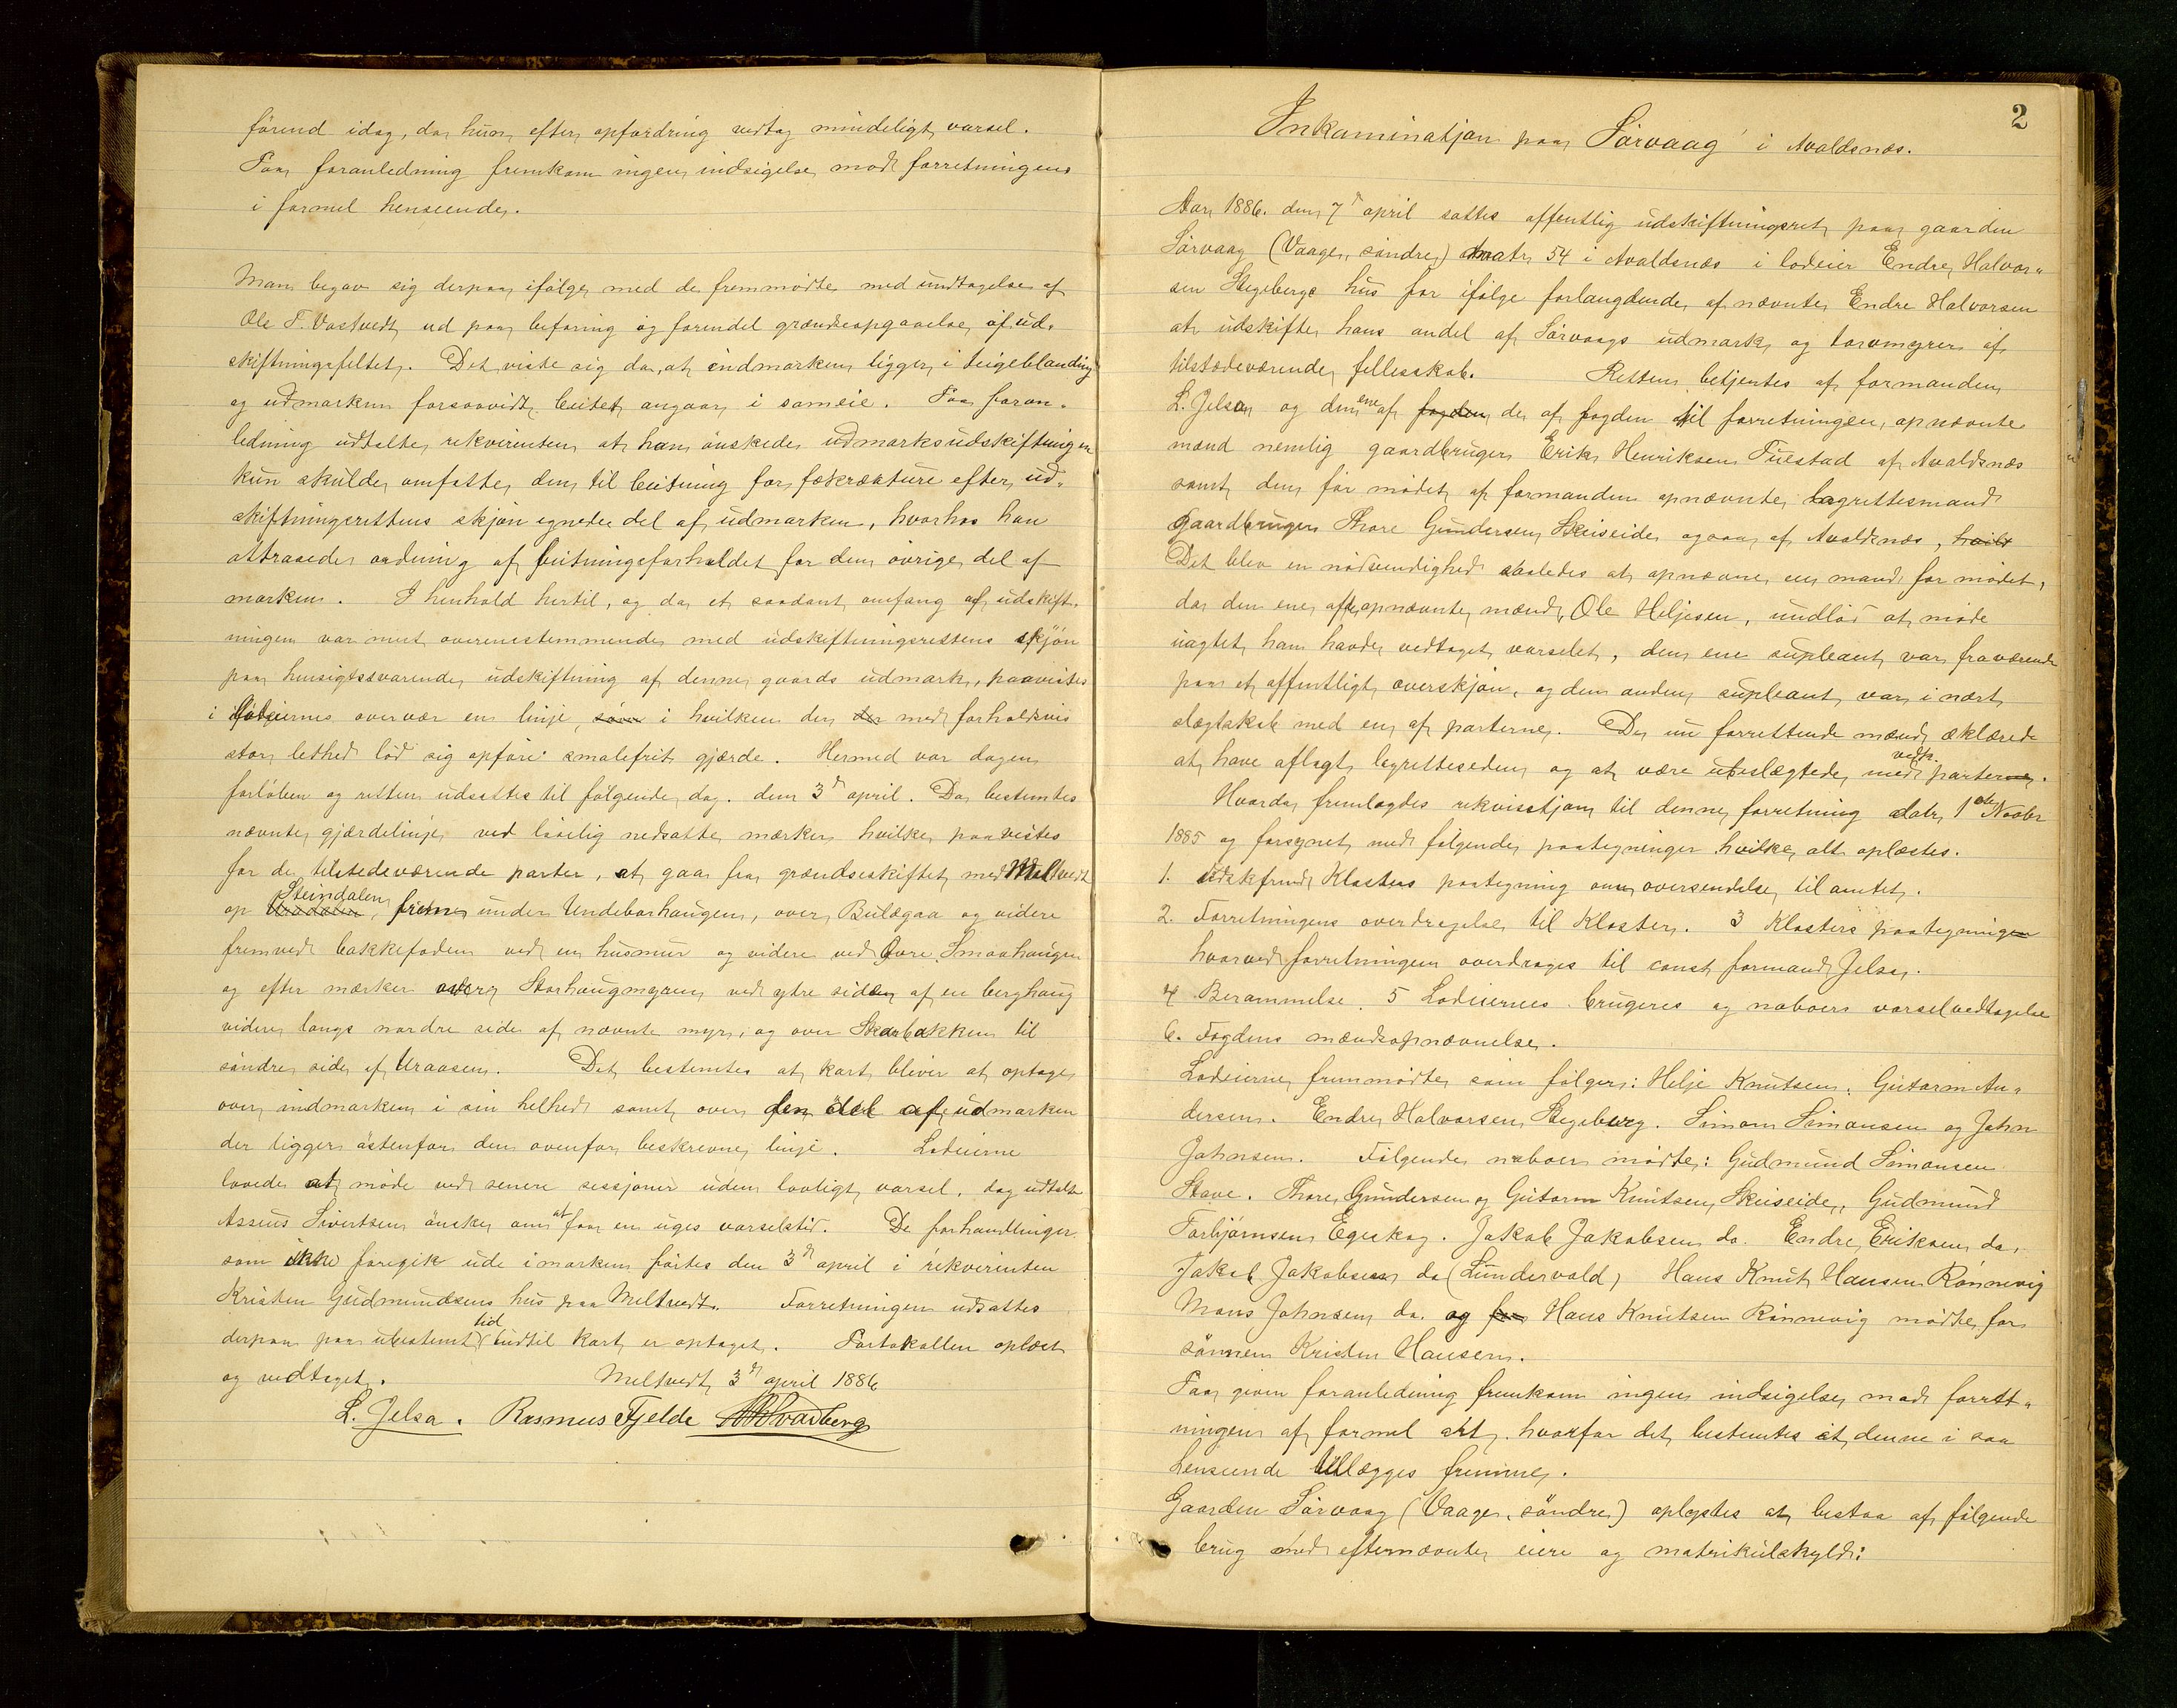 förend idag, da han efter opfordring vedtog mindeligt varsel.
Paa foranledning fremkom ingen indsigelse mod forretningens
i formel henseende.
Man begav sig derpaa ifölge med de fremmödte med undtagelse af
Ole T. Vastvedt ud paa befaring og forendel grændseopgaaelse af ud-
skiftningsfeltet. Det viste sig da, at indmarken ligger i teigeblanding
og udmarken forsaavidt beitet angaar i sameie. Paa foran-
ledning udtalte rekvirenten at han önskede udmarksudskiftningen
kun skulde omfatte den til beitning for fækreature efter ud-
skiftningsrettens skjön egnede del af udmarken, hvorhos han
attraaede ordning af beitningsforholdet for den övrige del af
marken. I henhold hertil, og da et saadant omfang af udskift-
ningen var mest overenstemmende med udskiftningsrettens skjön
paa hensigtssvarende udskiftning af denne gaards udmark, paavistes
i lodeiernes overvær en linje, som i hvilken der der med forholdsvis
stor lethed lod sig opföre smalefrit gjærde. Hermed var dagen
forlöben og retten udsattes til fölgende dag. den 3d april. Da bestemtes
nævnte gjærdelinje ved lovlig nedsatte mærker hvilke paavistes
for de tilstedeværende parter, at gaa fra grændseskiftet med Meltvedt
op Steindalen, frem under Undeborhaugen, over Bulægaa og videre
fremved bakkefoden ved en husmur og videre ved Övre Smaahaugen
og efter mærker over Storhaugmyren ved ytre siden af en berghaug
videre langs nordre side af nævnte myr, og over Skarbakken til
söndre side af Uraasen. Det bestemtes at kart bliver at optage
over indmarken i sin helhed samt over den del af udmarken
der ligger östenfor den ovenfor beskrevne linje. Lodeierne
lovede at möde ved senere sessjoner uden lovligt varsel, dog udtalte
Asseus Sivertsen önske om at faa en uges varselstid. De forhandlinger
som ikke foregik ude i marken förtes den 3d april i rekvirenten
Kristen Gudmundsens hus paa Meltvedt. Forretningen udsattes
derpaa paa ubestemt tid indtil kart er optaget. Protokollen oplæst
og vedtaget. Meltvedt 3d april 1886
L. Jelsa. Rasmus Fjelde
2
Inkaminatjon paa Sörvaag i Avaldsnæs.
Aar 1886. den 7d april sattes offentlig udskiftningsret paa gaarden
Sörvaag (Vaage, söndre) matr 54 i Avaldsnæs i lodeier Endre Halvor-
sen Stegebergs hus for ifölge forlangdende af nævnte Endre Halvorsen
at udskifte hans andel af Sörvaags udmark og torvmyrer af
tilstedeværende fellesskab. Retten betjentes af formanden
L. Jelsa og den ene af fogden de af fogden til forretningen opnævnte
mænd nemlig gaardbruger Erik Henriksen Tuestad af Avaldsnæs
samt den för mödet af formanden opnævnte lagrettesmand
gaardbruger Thore Gundersen Skeiseide ogsaa af Avaldsnæs, hvilt
Det blev en nödvendighed saaledes at opnævne en mand for mödet,
da den ene af de opnævnte mænd, Ole Heljesen, undlod at möde
uagtet han havde vedtaget varselet, den ene supleant var fraværende
paa et offentligt overskjön, og den anden supleant var i nært
slægtskab med en af parterne. De nu forrettende mænd erklærede
at have aflagt lagretteseden og at være ubeslægtede med vedk. parterne.
Hvorda fremlagdes rekvisitjon til denne forretning datr 1ste Novbr
1885 og forsynet med fölgende paategninger hvilke alt oplæstes.
1. Udskfmd Klosters paategning om oversendelse til amtet.
2. Forretningens overdragelse til Kloster. 3 Klosters paategningen
hvorved forretningen overdrages til const formand Jelsa.
4 Berammelse. 5 Lodeiernes brugeres og naboers varselvedtagelse
6. Fogdens mændsopnævnelse.
Lodeierne fremmödte som fölger: Helje Knutsen. Gutorm An-
dersen. Endre Halvorsen Stegeberg. Simon Simonsen og John
Johnsen. Fölgende naboer mödte: Gudmund Simonsen
Stave. Thore Gundersen og Gutorm Knutsen Skeiseide, Gudmund
Torbjörnsen Egeskog. Jakob Jakobsen do. Endre Eriksen do.
Jakob Jakobsen do (Lundervold) Hans Knut Hansen Rönnevig
Mons Johnsen do. og for Hans Knutsen Rönnevig mödte for
sönnen Kristen Hansen.
Paa given foranledning fremkom ingen indsigelse mod forret-
ningen af formel art. hvorfor det bestemtes at denne i saa
henseende tillægges fremme.
Gaarden Sörvaag (Vaage, söndre) oplystes at bestaa af fölgende
brug med efternævnte eiere og matrikulskyld: